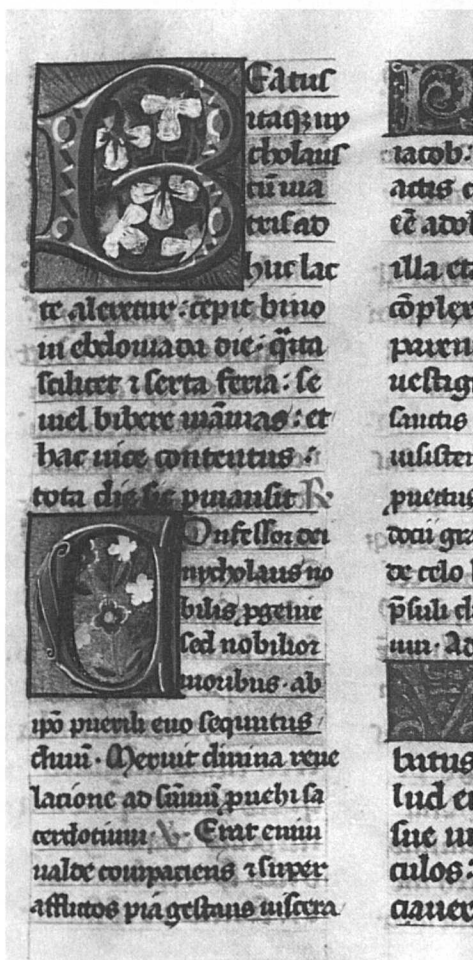 Beatus
itaqz ny
cholaus
cū iiia
tris ad
huc lac
te aleretur : cepit bino
in ebdomada die : q̄rta
scilicet ⁊ serta feria : se
mel bibere māmas : et
hac uice contentus :
tota die sic pmansit R
Confessor dei
nycholaus no
bilis pgenie
sed nobilior
moribus · ab
ipō puerili euo sequutus
dn̄m · Meruit diuina reue
lacione ad sūmū puehi sa
cerdotium · V · Erat enim
ualde compaciens ⁊ super
afflictos pia gestans uiscera
iacob :
actis
eē adol
illa
cōplex
paren
uestig
sanctis
uisisten
puectus
docū gra
de celo
p̄suli
uit · Ad
batus
lud et
sue
culos :